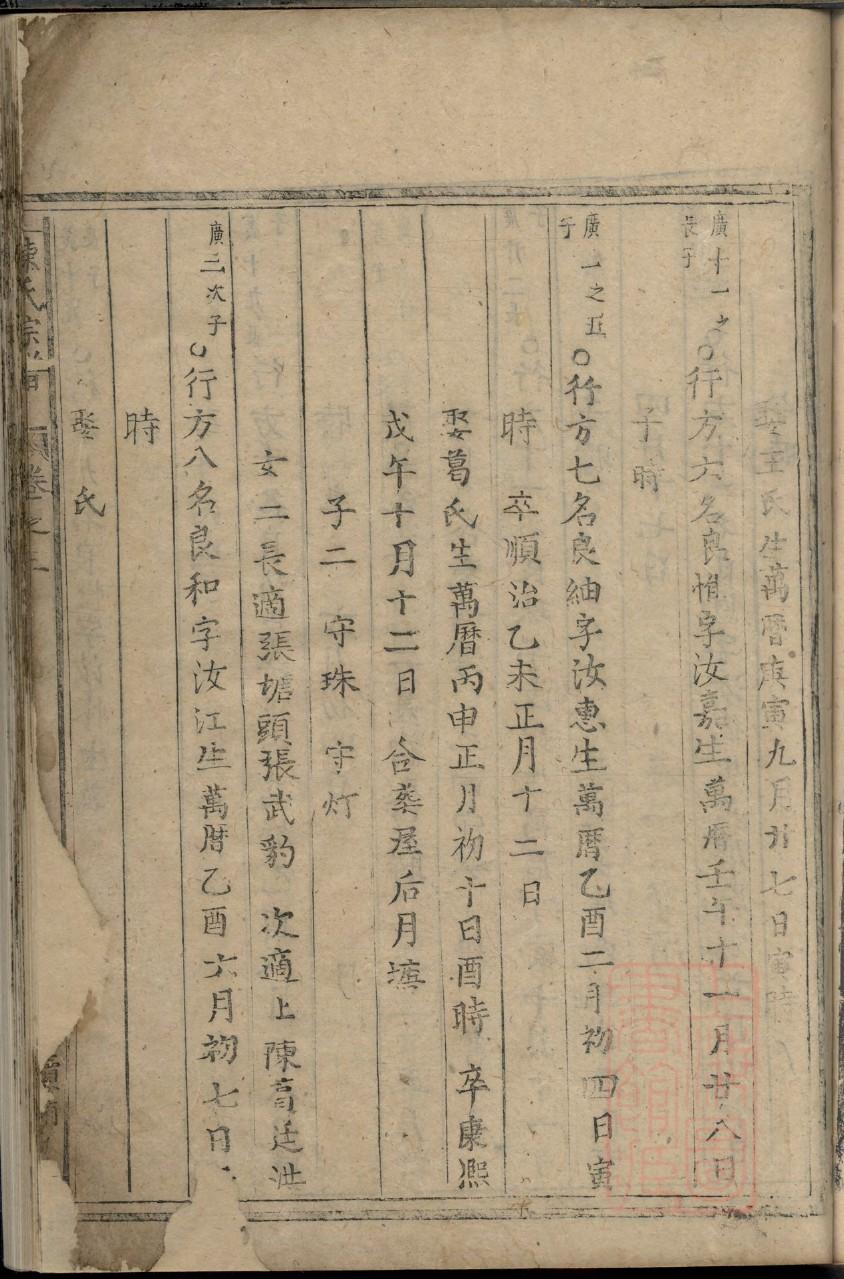 娶王氏生萬曆庚寅九月廿七日寅時
廣十一之長子
○行方六名良惟字汝嘉生萬曆壬午十一月廿八日
子時
廣一之五子
○行方七名良紬字汝惠生萬曆乙酉二月初四日寅
時 卒順治乙未正月十二日
娶葛氏生萬曆丙申正月初十日酉時 卒康熙
戊午十月十二日 合葬屋后月塘
子二 守珠 守灯
女二長適張塘頭張武豹 次適上陳高廷洪
廣三次子
○行方八名良和字汝江生萬曆乙酉六月初七日
時
娶 氏
陳氏宗譜 卷之二